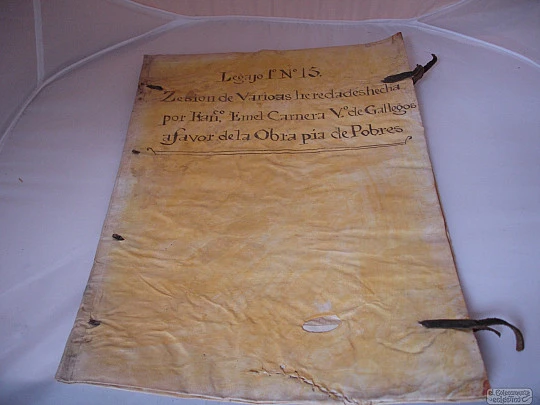 Legajo 1º Nº 15.
Zesion de Varias heredades hecha
por Franº Emel Carnera Vº de Gallegos
a favor de la Obra pia de Pobres
el Coleccionista ecléctico